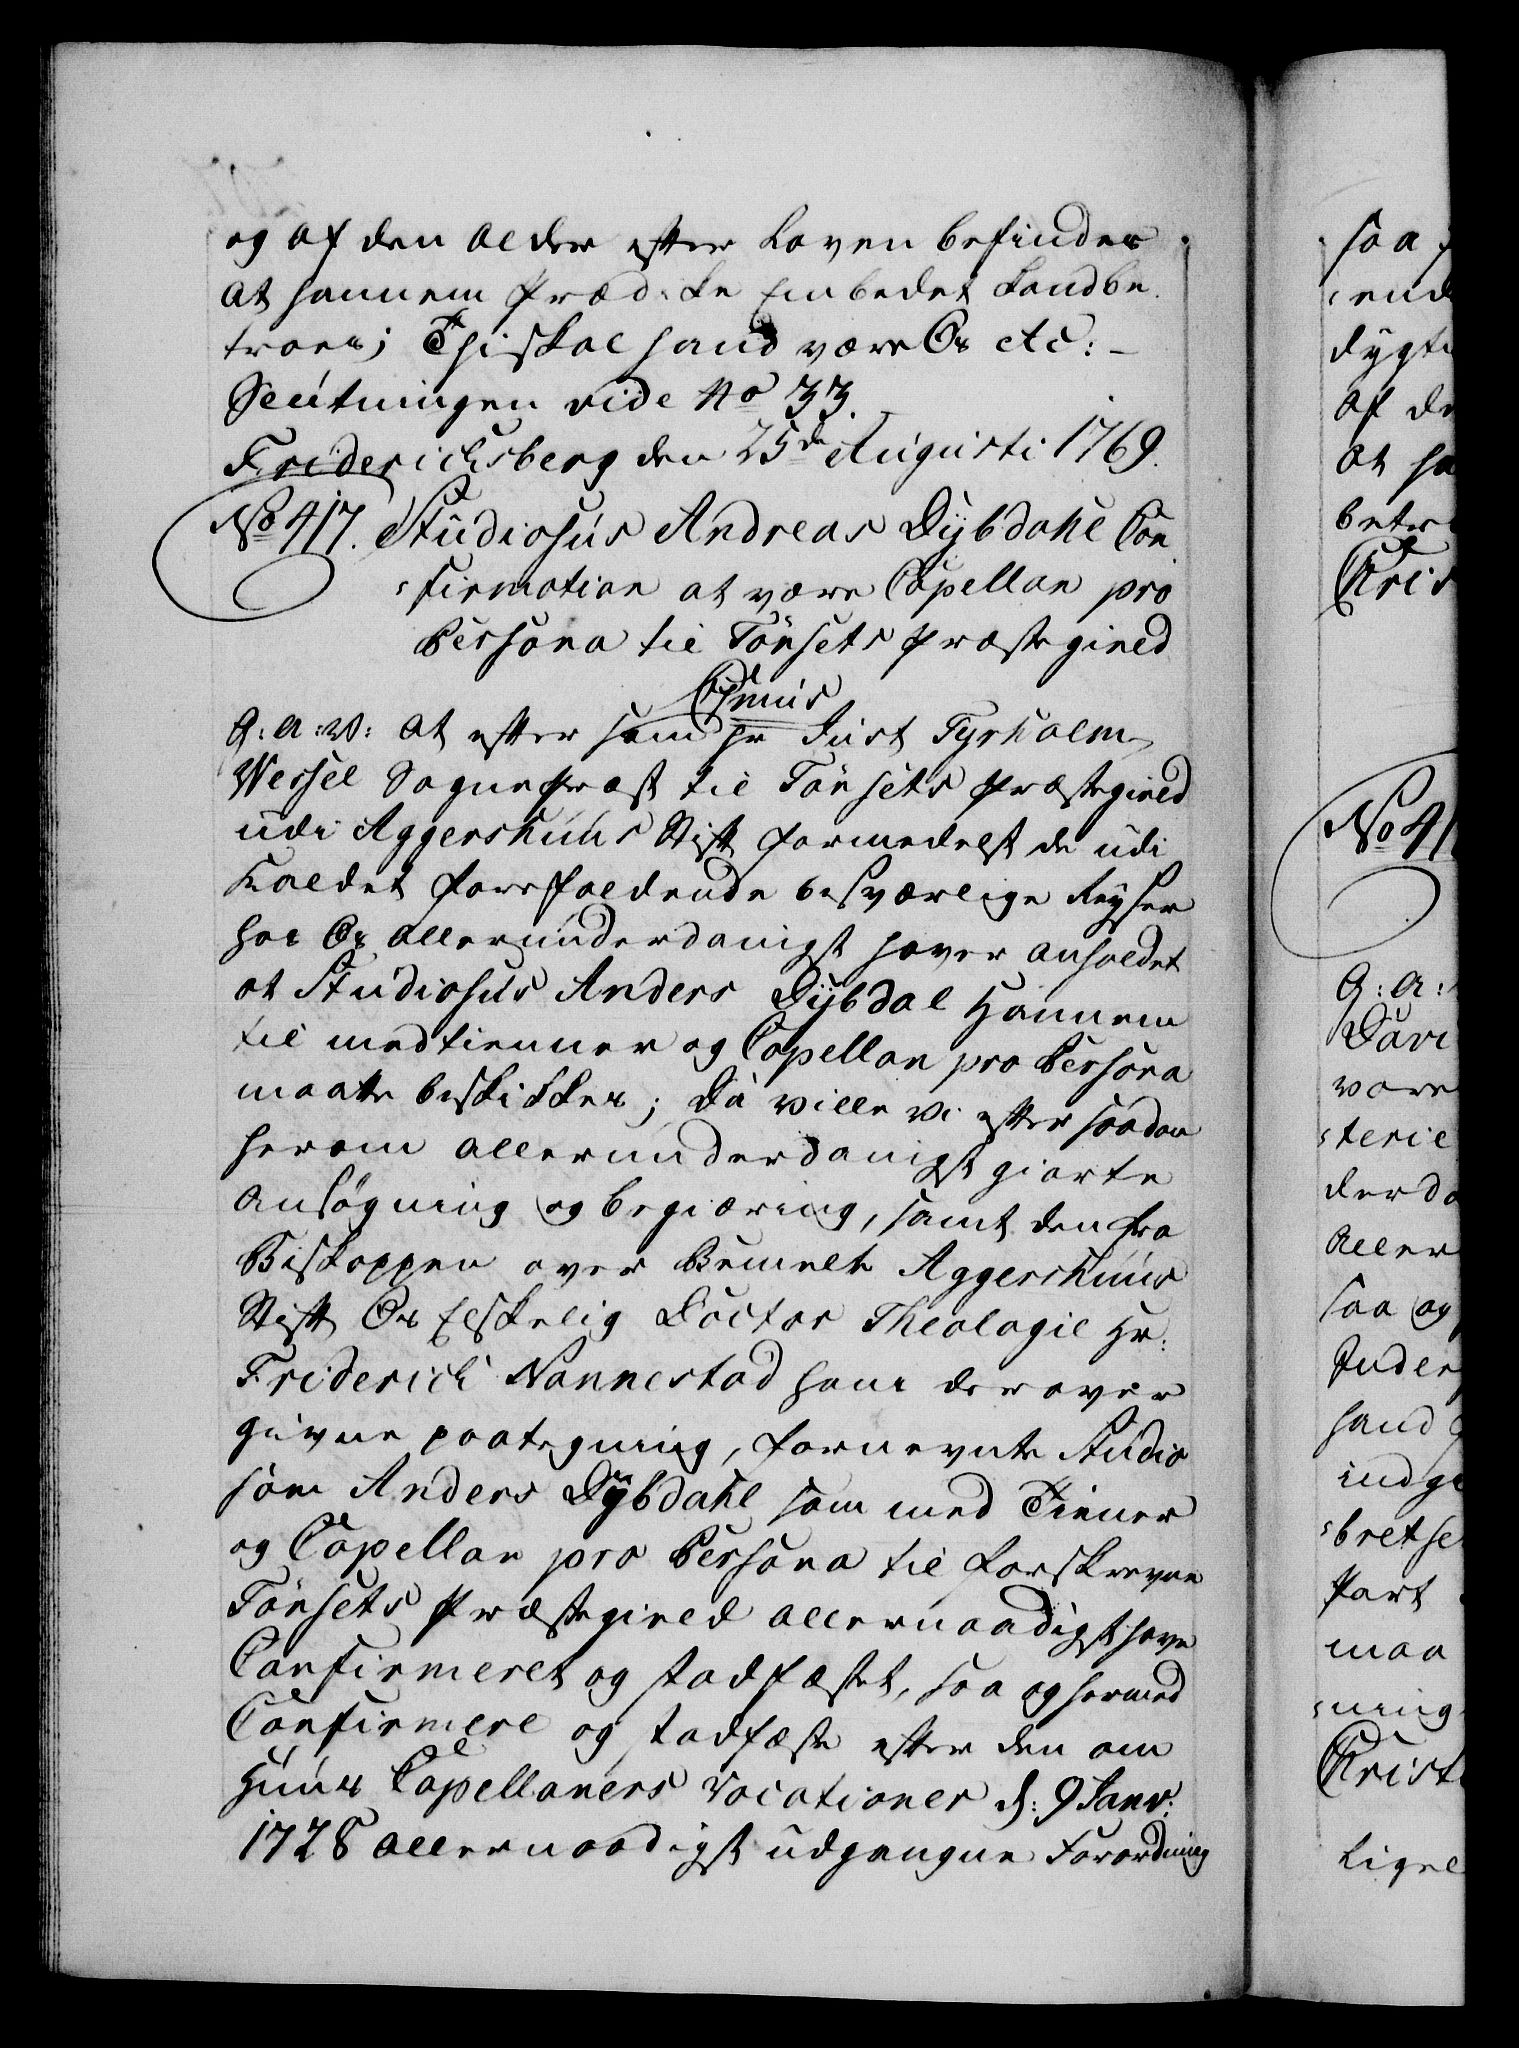 og af den Alder efter Loven befindes
at hannem Prædike Embedet kand be
troes; Thi skal hand være Os etc: –
Slutningen vide No 33.
Friderichsberg den 25de Augusti 1769.
No 417. Studiosus Andreas Dybdahl Con
firmation at være Capellan pro
Persona til Tönsets Præstegield
C7mus
G: A: V: at efter som Hr Just Tyrholm
Wessel Sognepræst til Tönsets Præstegield
udi Aggershuus Stift formedelst de udi
Kaldet forefaldende besværlige Reyser
hos Os allerunderdanigst haver anholdet
at Studiosus Anders Dybdal Hannem
til medtienner og Capellan pro Persona
maatte beskikkes; Da ville Vi efter saadan
herom allerunderdanigst giorte
Ansøgning og begiæring, samt den fra
Biskoppen over Bemelte Aggershuus
Stift Os Elskelig Doctor Theologie Hr:
Friderich Nannestad ham derover
givne paategning, fornevnte Studio
som Anders Dybdahl som med Tienner
og Capellan pro Persona til forskrevne
Tönsets Præstegield allernaadigst have
Confirmeret og stadfæstet, saa og hermed
Confirmere og stadfæste efter den om
Huus Capellaners Vocationer d: 9 Janv:
1728 allernaadigst udgangne Forordning
saa
end
dygti
af de
at ha
betr
Chris
No 41
G: A:
Davi
vore
terie
derda
Aller
saa og
Under
hand
indge
bretse
Part
maa
ning
Christ
Ligel